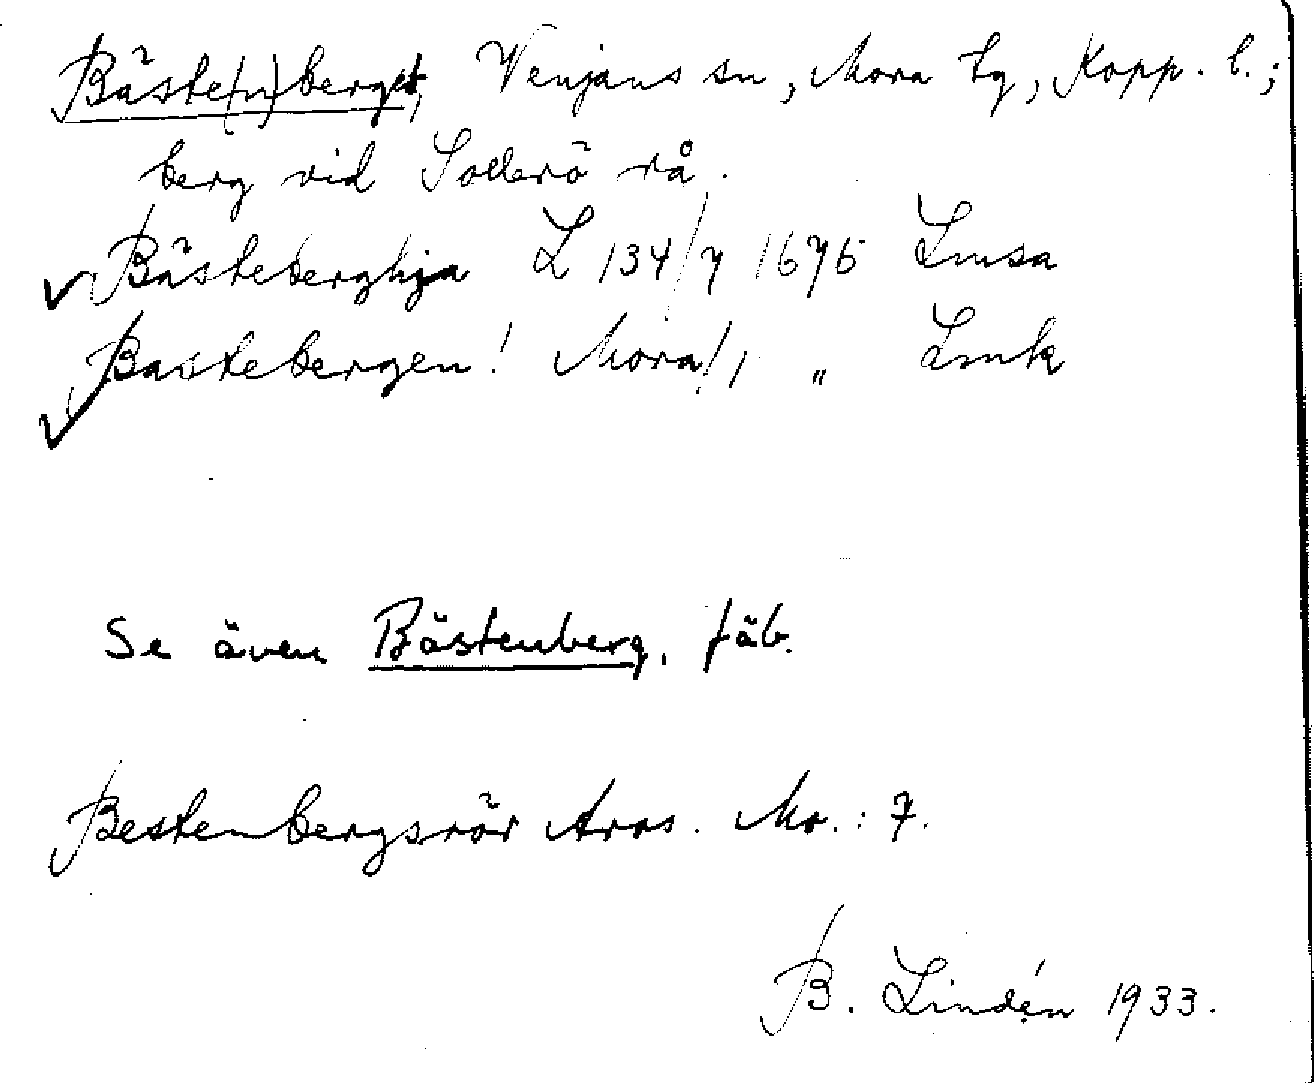 Bäste(n)berget, Venjans sn, Mora tg, Kopp. l.;
berg vid Sollerö rå.
Bästeberghja L 134/7 1675 Lmsa
Bastebergen! Mora!/1 " Lmk
Se även Bästenberg, fäb.
Bestenbergsrör Avrs. Mo.: 7.
B. Lindén 1933.